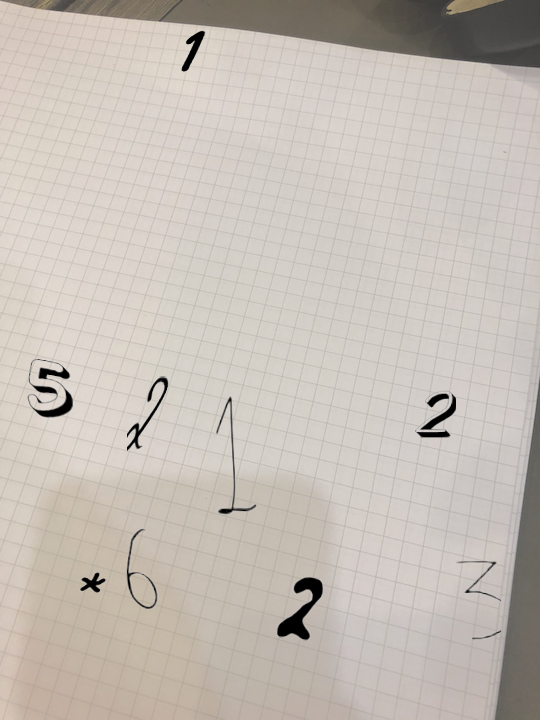 1
5 2 1 2
* 6 2 3